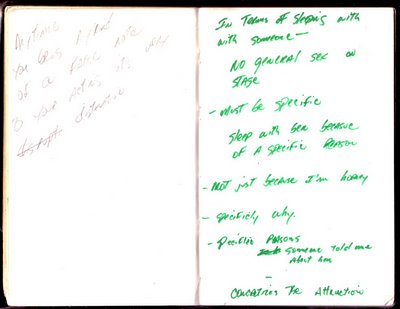 Anytime
you
of a false note
in your acting it's
distraction
In Terms of Sleeping with
with someone—
No general sex on
stage
- Must be specific
sleep with her because
of A specific Reason
- Not just because I'm horny
- specificly why.
- Specific Persons
someone told me
About her
–
Concerning The Attraction